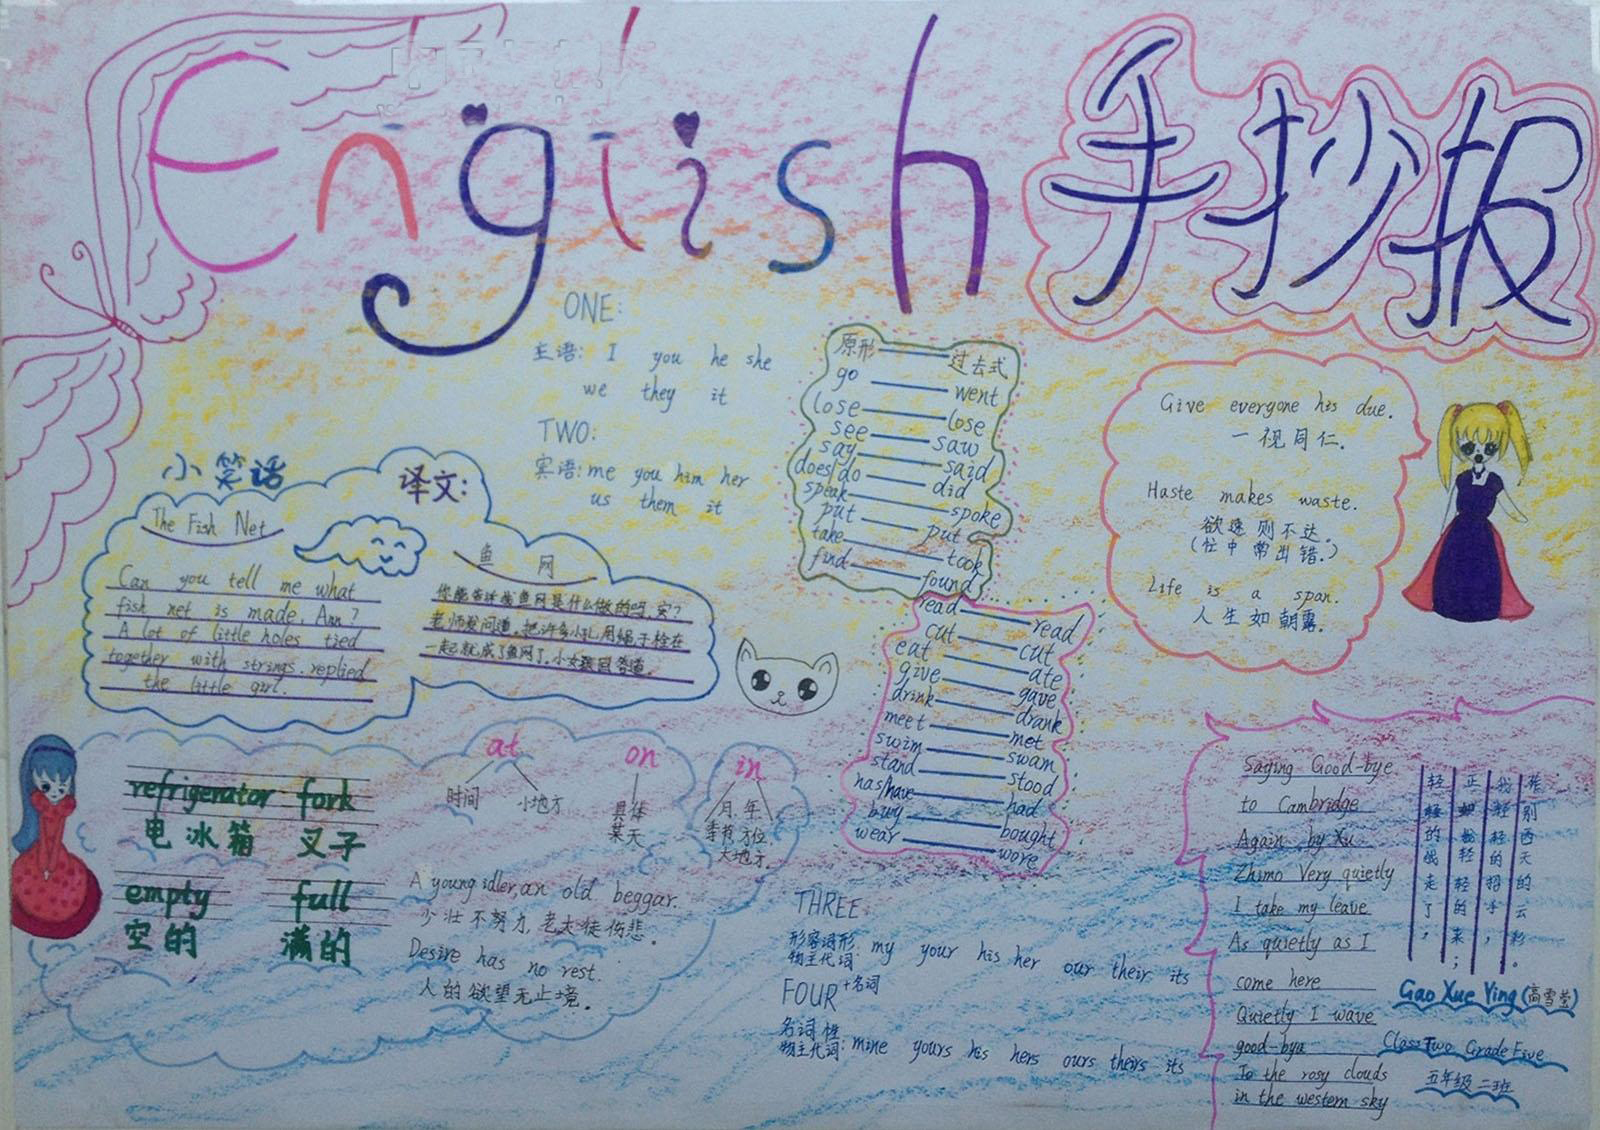 English 手抄报
ONE:
主语: I you he she
we they it
TWO:
宾语: me you him her
us them it
小笑话
译文:
The Fish Net
Can you tell me what
fish net is made, Ann?
A lot of little holes tied
together with strings. replied
the little girl.
鱼网
你能告诉我鱼网是什么做的吗,安?
老师发问道。把许多小孔用绳子栓在
一起就成了鱼网了。小女孩回答道。
原形 过去式
go went
lose lose
see saw
say said
does/do did
speak spoke
put put
take took
find found
read read
cut cut
eat ate
give gave
drink drank
meet met
swim swam
stand stood
has/have had
buy bought
wear wore
Give everyone his due.
一视同仁.
Haste makes waste.
欲速则不达.
(忙中常出错.)
Life is a span.
人生如朝露.
refrigerator fork
电冰箱 叉子
empty full
空的 满的
at
时间 小地方
on
具体
某天
in
月 年
季节 方位
大地方
A young idler, an old beggar.
少壮不努力,老大徒伤悲。
Desire has no rest.
人的欲望无止境。
THREE
形容词形
物主代词: my your his her our their its
+名词
FOUR
名词性
物主代词: mine yours his hers ours theirs its
Saying Good-bye
to Cambridge
Again by Xu
Zhimo Very quietly
I take my leave
As quietly as I
come here
Quietly I wave
good-bya
To the rosy clouds
in the western sky
轻轻的我走了,
正如我轻轻的来;
我轻轻的招手,
作别西天的云彩。
Gao Xue Ying (高雪莹)
Class Two Grade Five
五年级二班